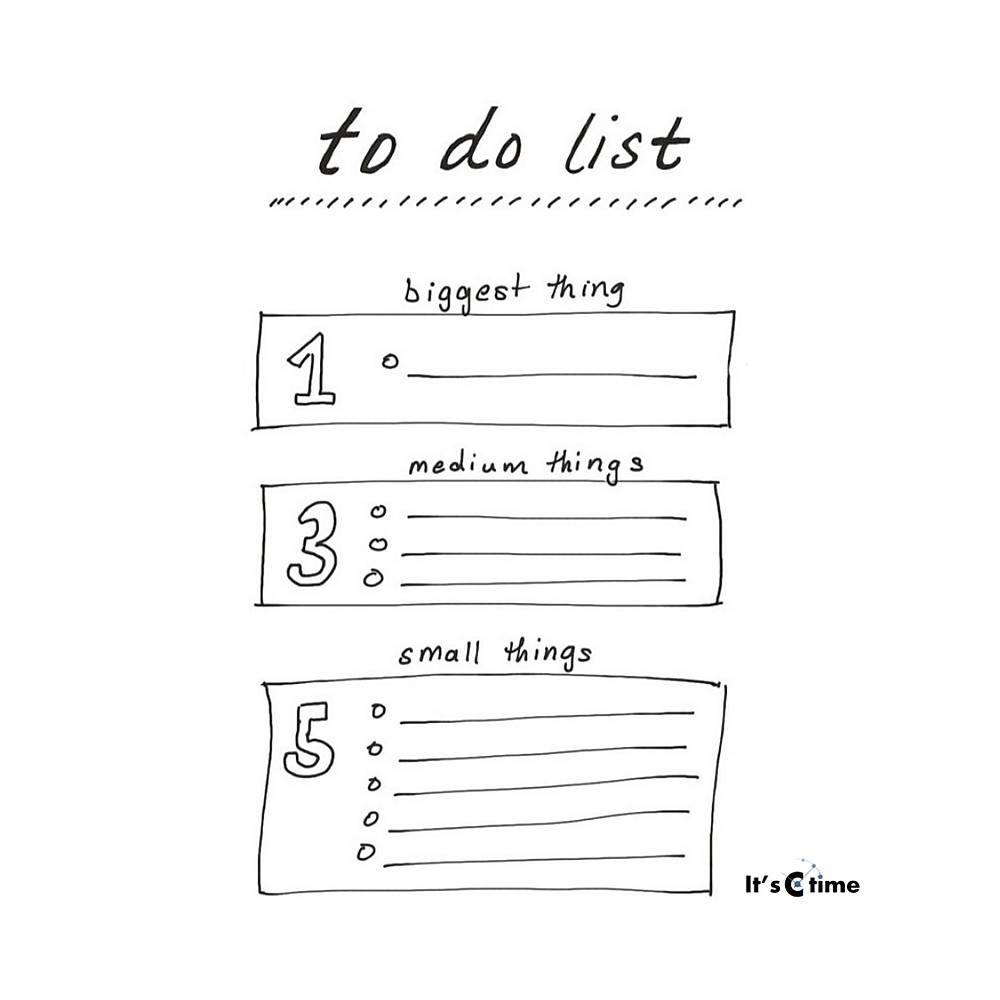 to do list
biggest thing
1
medium things
3
small things
5
It's C time